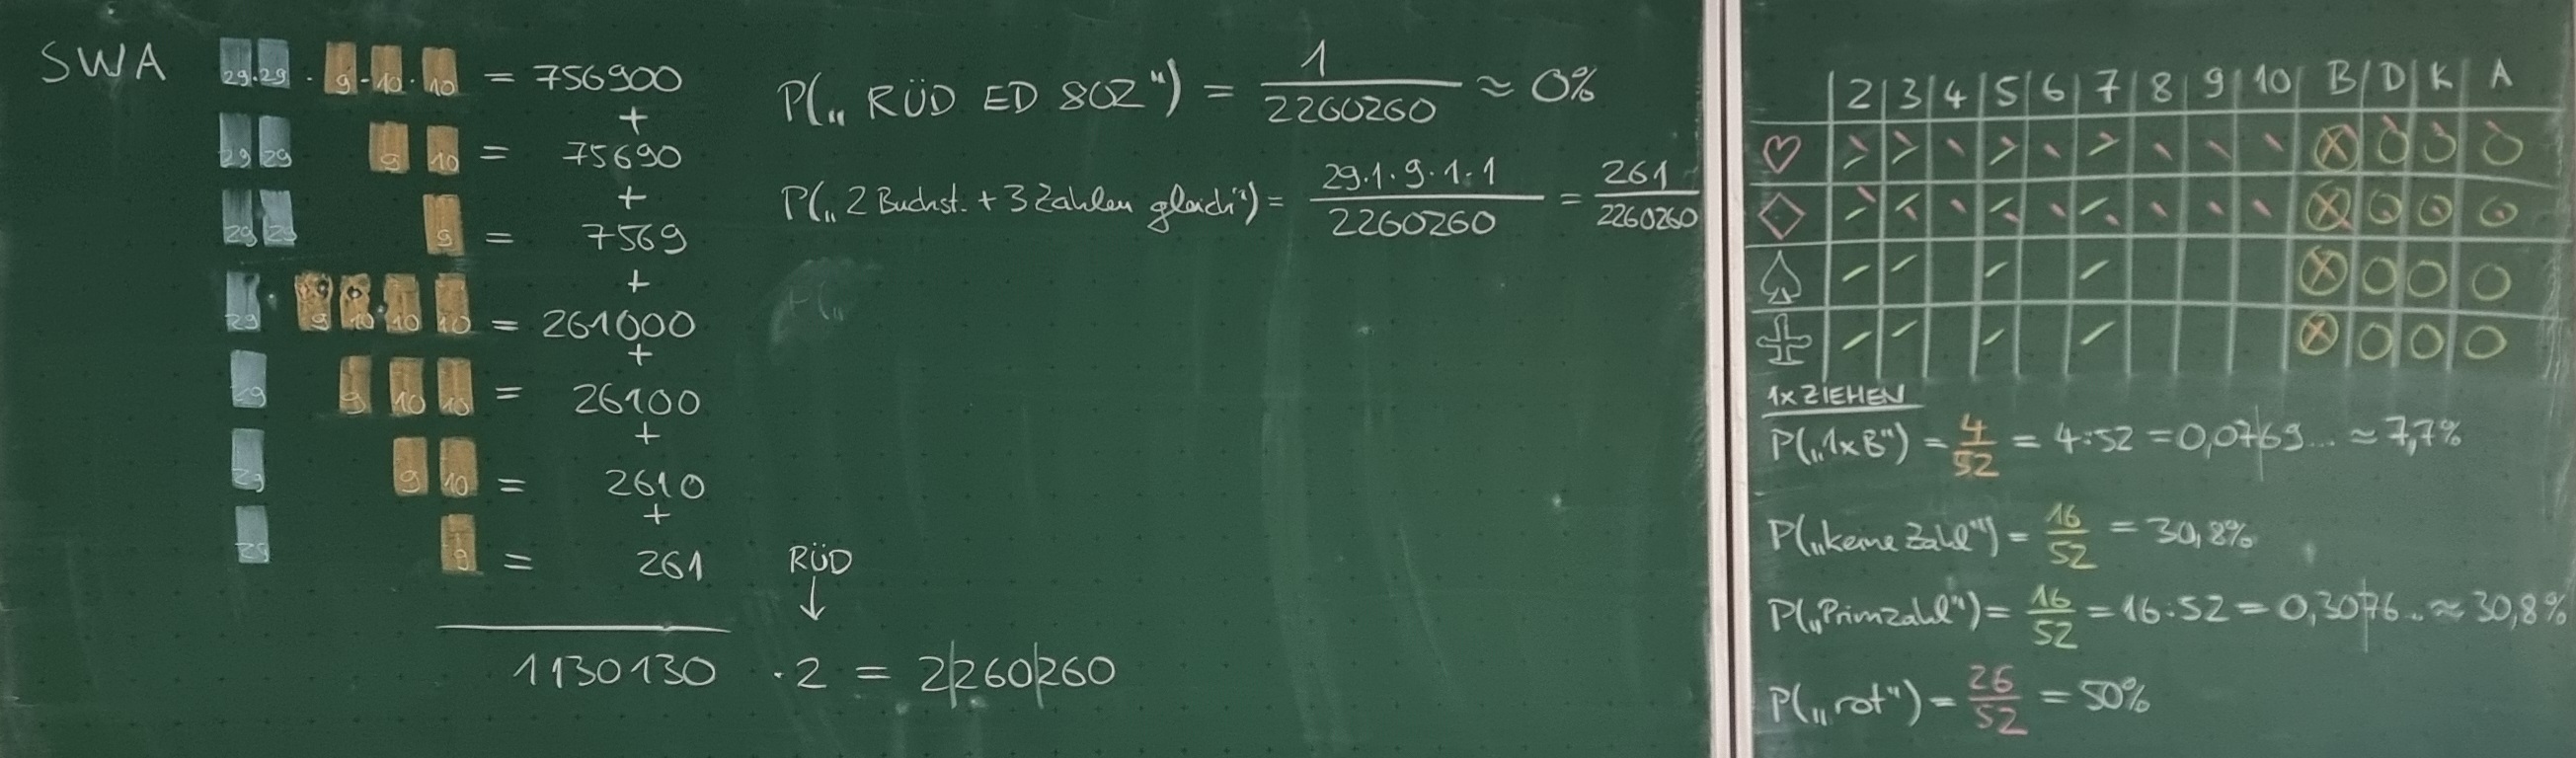 SWA
29·29 · 9·10·10 = 756900
+
29 29 9 10 = 75690
+
29 29 9 = 7569
+
29 9 10 10 10 = 261000
+
29 9 10 10 = 26100
+
29 9 10 = 2610
+
29 9 = 261
RÜD
↓
1130130 · 2 = 2|260|260
P(„RÜD ED 802“) = 1/2260260 ≈ 0%
P(„2 Buchst. + 3 Zahlen gleich“) = 29·1·9·1·1/2260260 = 261/2260260
2 3 4 5 6 7 8 9 10 B D K A
♡
♢
♤
1x ZIEHEN
P(„1xB“) = 4/52 = 4:52 = 0,07|69... ≈ 7,7%
P(„keine Zahl“) = 16/52 = 30,8%
P(„Primzahl“) = 16/52 = 16:52 = 0,30|76.. ≈ 30,8%
P(„rot“) = 26/52 = 50%